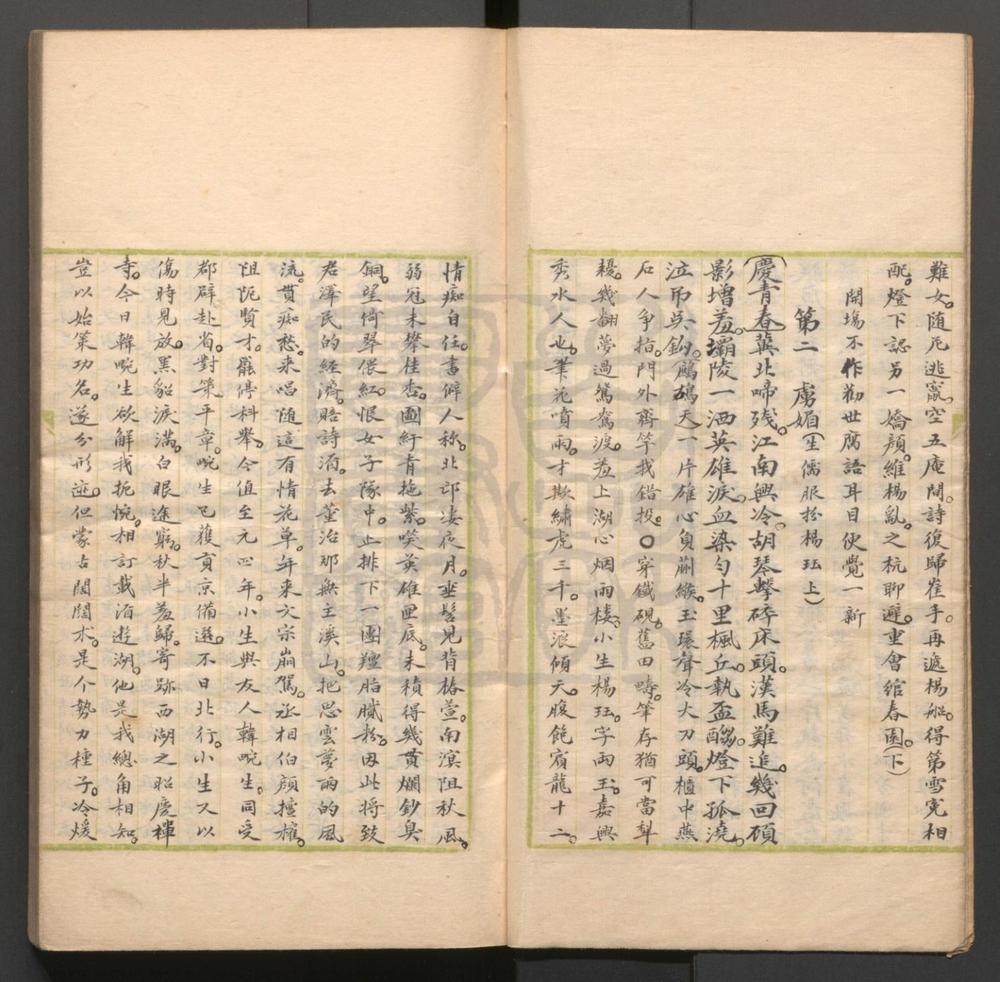 難女。隨兄逃竄。空五庵間詩復歸崔手。再遞楊船。得第雪寃相
配。燈下認另一嬌顏。維楊亂。之杭聊避。重會綰春園。(下)
開場不作勸世腐語耳目便覺一新
第二　虜媚(生儒服扮楊珏上)
(慶青春)冀北啼殘。江南興冷。胡琴擊碎床頭。漢馬難追。幾回碩
影增羞。灞陵一洒英雄淚。血染勻十里楓丘。執盃酸。燈下孤澆。
泣吊吳鈎。鷓鴣天一片雄心負蒯緱。玉環聲冷大刀頭。櫃中燕
石人爭指。門外齊竽我錯投。○穿鐵硯。舊田疇。筆存猶可當犁
耰。幾翻夢過鴛鴦渡。羞上湖心烟雨樓。小生楊珏。字雨玉。嘉興
秀水人也。筆花噴雨。才欺繡虎三千。墨浪傾天。腹飽賓龍十二。
情痴自任。書僻人称。北邙凄夜月。垂髫見背椿萱。南溟阻秋風。
弱冠未攀桂杏。圖紆青拖紫。嘆英雄匣底。未積得幾貫爛鈔臭
銅。望倚翠偎紅。恨女子隊中。止排下一團羶脂膩粉。因此將致
君澤民的經濟。賠詩酒。去董治那無主溪山。把思雲夢雨的風
流。貫痴愁。来唱隨這有情花草。年来文宗崩駕。丞相伯顏擅權。
阻阨賢才。罷停科舉。今值至元四年。小生與友人韓晼生。同受
都辟赴省。對策平章。晼生已獲貢京備選。不日北行。小生又以
傷時見放。黑貂淚滿。白眼途窮。秋半羞歸。寄跡西湖之昭慶禪
寺。今日韓晼生欲解我扼惋。相訂載酒遊湖。他是我總角相知。
豈以始策功名。遂分形迹。但蒙古闊闊朮。是个勢力種子。冷煖